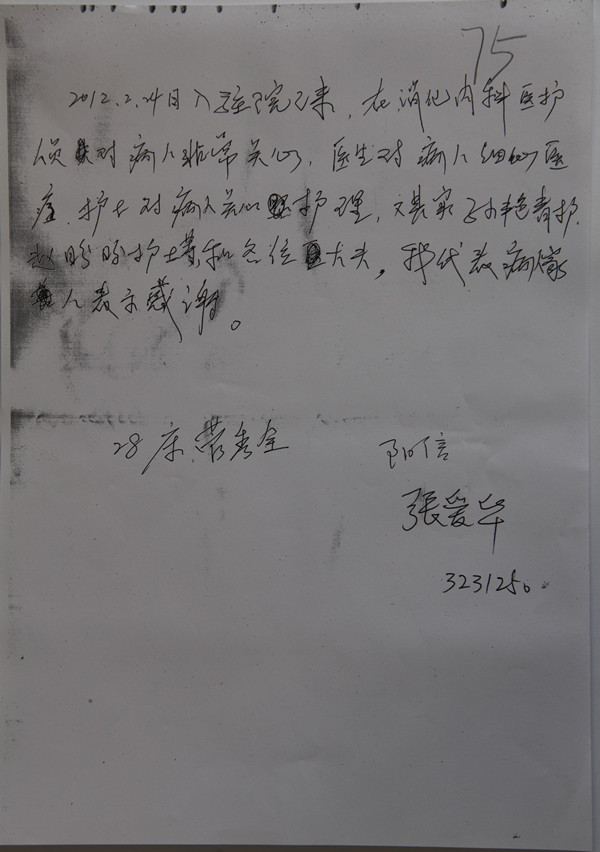 75
2012.2.24日入住院以来,在消化内科医护
员对病人非常关心,医生对病人细心医
疗.护士对病人关心护理,尤其家孙艳青护.
赵盼盼护士长和各位大夫,我代表病家
人表示感谢。
28床 秀全 阳信
張爱华
3231250